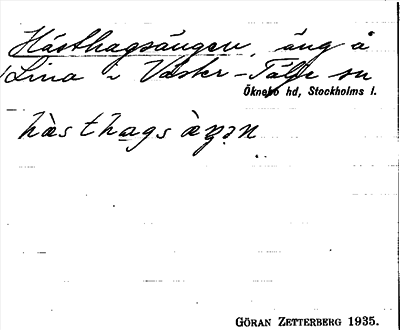 Hästhagsängen, äng å
Lina i Väster-Tälje sn
Öknebo hd, Stockholms l.
hàsthagsàŋən
GÖRAN ZETTERBERG 1935.